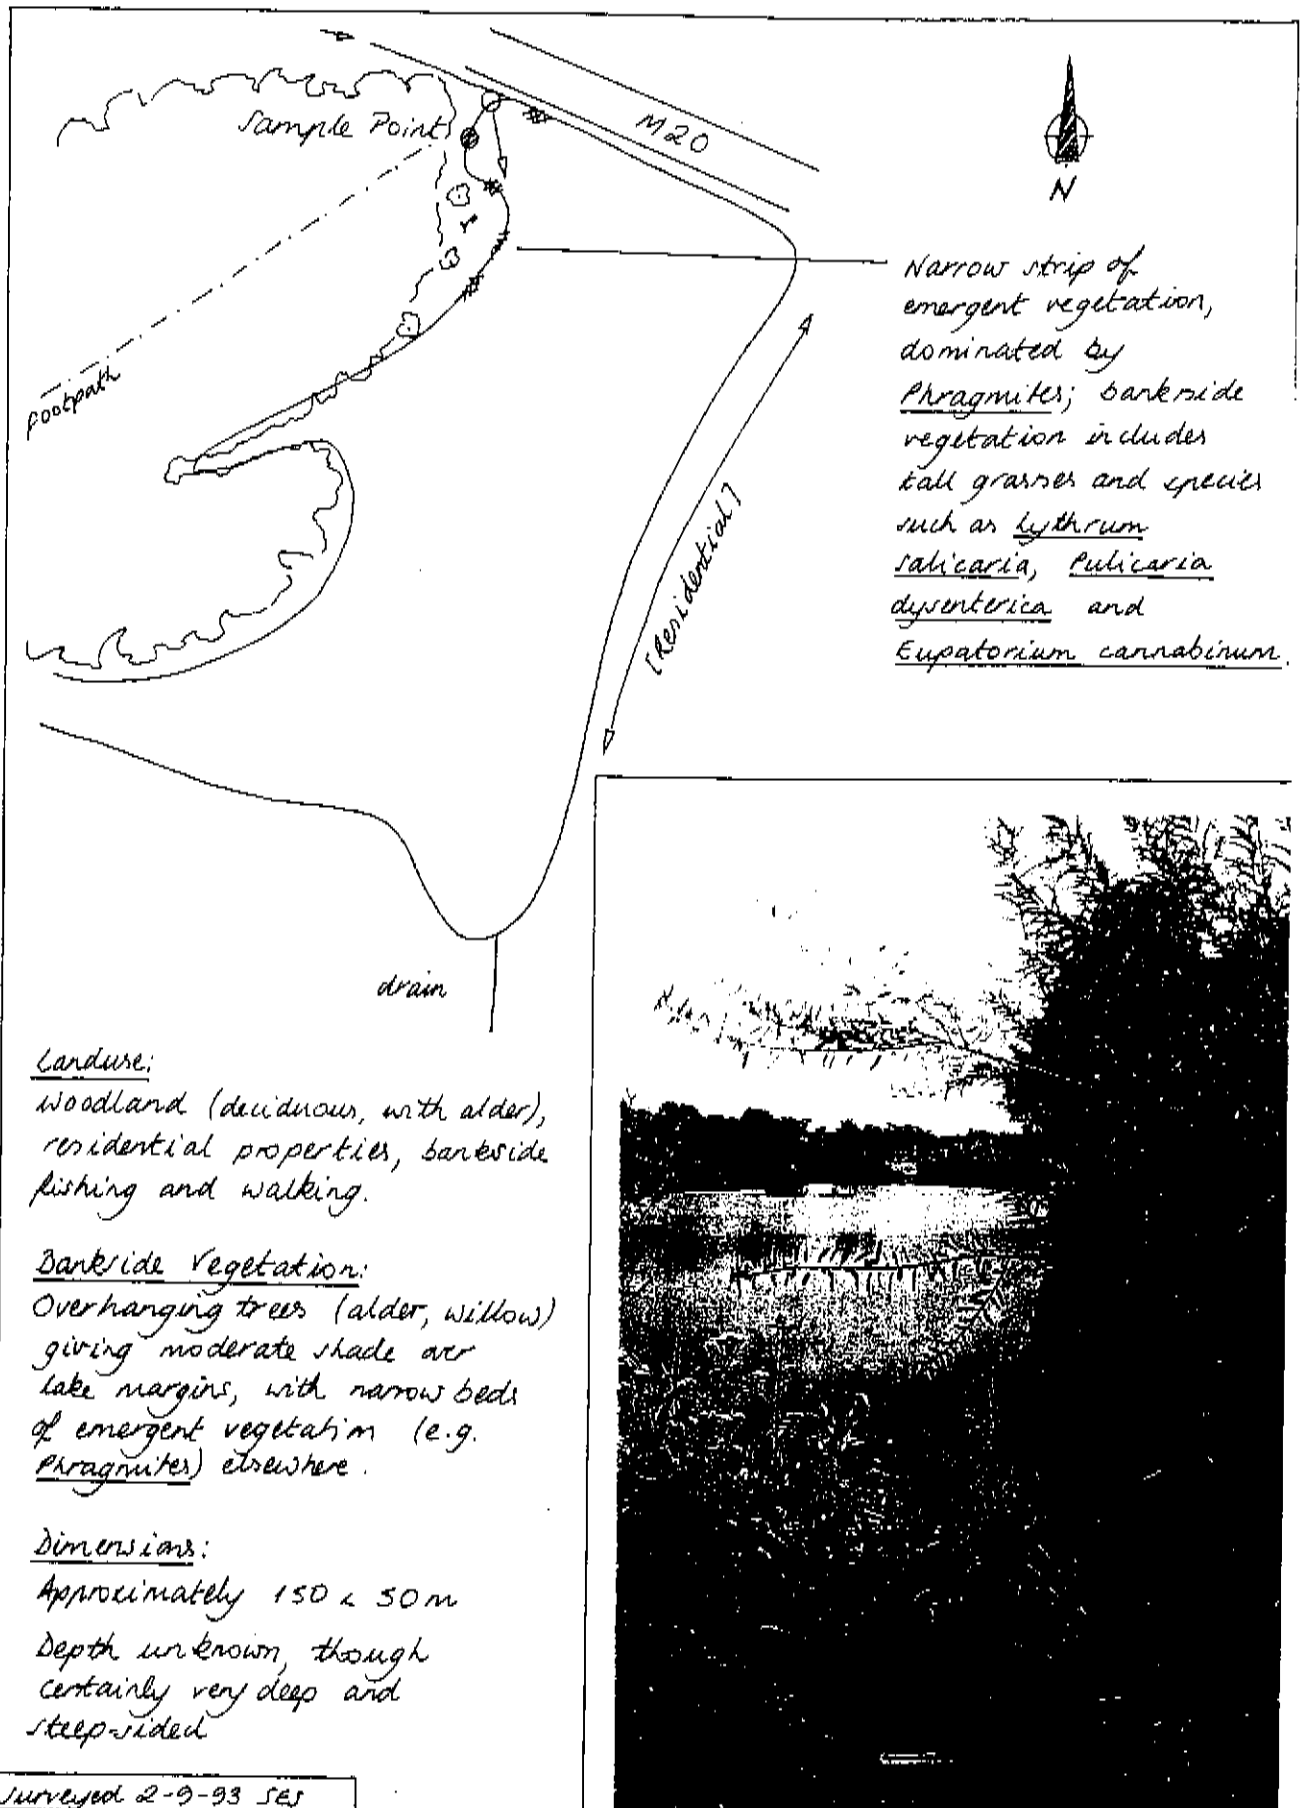 Sample Point
M20
N
Footpath
[Residential]
Narrow strip of
emergent vegetation,
dominated by
Phragmites; bankside
vegetation includes
tall grasses and species
such as Lythrum
salicaria, Pulicaria
dysenterica and
Eupatorium cannabinum.
drain
Landuse:
Woodland (deciduous, with alder),
residential properties, bankside
fishing and walking.
Bankside Vegetation:
Overhanging trees (alder, willow)
giving moderate shade over
lake margins, with narrow beds
of emergent vegetation (e.g.
Phragmites) elsewhere.
Dimensions:
Approximately 150 x 50m
Depth unknown, though
certainly very deep and
steep-sided
Surveyed 2-9-93 SES